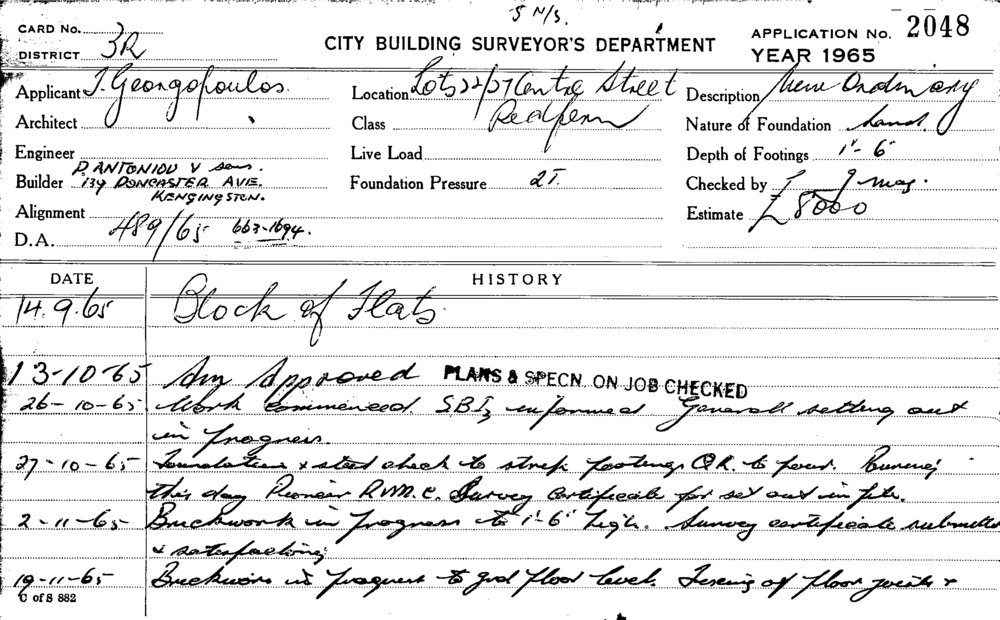 5 N/S.
CARD No.
DISTRICT 3R
CITY BUILDING SURVEYOR'S DEPARTMENT
APPLICATION No. 2048
YEAR 1965
Applicant J. Georgopoulos.
Location Lots 22/27 Centre Street
Redfern
Description New Ordinary
Architect
Class
Nature of Foundation Sand.
Engineer
Live Load
Depth of Footings 1'- 6"
Builder P. ANTONIOU & Sons.
139 DONCASTER AVE.
KENGINGSTON.
Foundation Pressure 2T.
Checked by
Alignment
Estimate £8000
D.A. 489/65 663-1694.
DATE HISTORY
14.9.65 Block of Flats.
13-10-65 Approved PLANS & SPECN. ON JOB CHECKED
26-10-65 Work commenced. SBI informed General setting out
in progress.
27-10-65 Foundations & steel check to strip footings O.K. to pour.
this day Pioneer R.M.C. Survey certificate for set out in file.
2-11-65 Brickwork in progress to 1'-6" high. Survey certificate submitted
& satisfactory
19-11-65 Brickwork in progress to grd floor level. Fixing of floor joists &
C of S 882